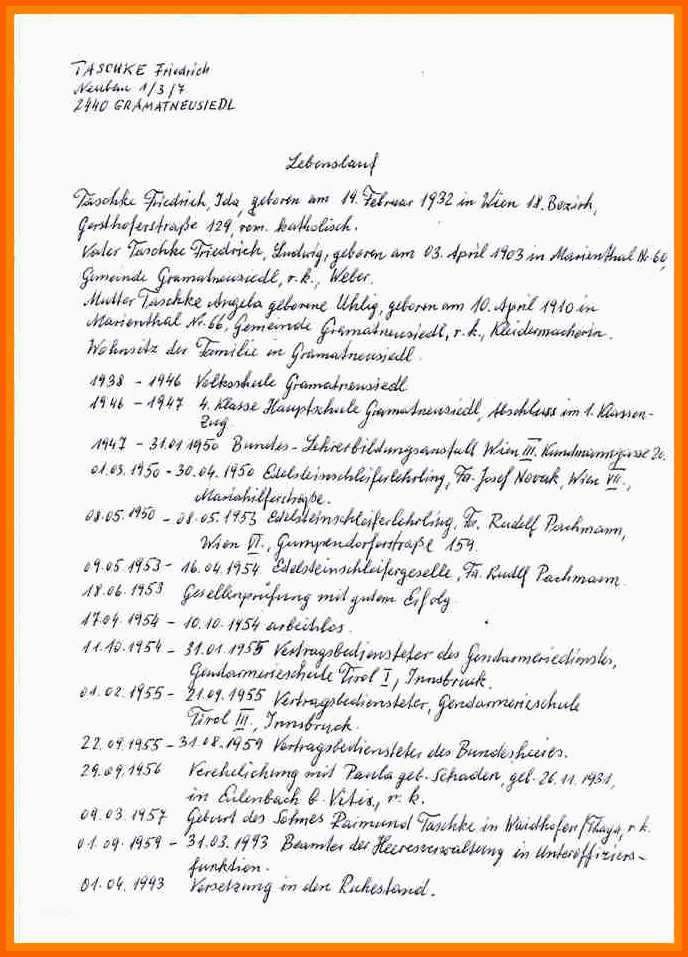 TASCHKE Friedrich
Neubau 1/3/7
2440 GRAMATNEUSIEDL
Lebenslauf
Taschke Friedrich, Ida, geboren am 14. Februar 1932 in Wien 18. Bezirk,
Gersthoferstraße 129, röm. katholisch.
Vater Taschke Friedrich, Ludwig, geboren am 03. April 1903 in Marienthal Nr. 60,
Gemeinde Gramatneusiedl, r. k., Weber.
Mutter Taschke Angela geborene Uhlig, geboren am 10. April 1910 in
Marienthal Nr. 66, Gemeinde Gramatneusiedl, r. k., Kleidermacherin.
Wohnsitz der Familie in Gramatneusiedl.
1938 - 1946 Volksschule Gramatneusiedl
1946 - 1947 4. Klasse Hauptschule Gramatneusiedl, Abschluss im 1. Klassen-
zug
1947 - 31.01.1950 Bundes-Lehrerbildungsanstalt Wien III. Kundmanngasse 20.
01.03.1950 - 30.04.1950 Edelsteinschleiferlehrling, Fa. Josef Novak, Wien VII.,
Mariahilferstraße.
08.05.1950 - 08.05.1953 Edelsteinschleiferlehrling, Fa. Rudolf Pachmann,
Wien VI., Gumpendorferstraße 159.
09.05.1953 - 16.04.1954. Edelsteinschleifergeselle, Fa. Rudlf Pachmann.
18.06.1953 Gesellenprüfung mit gutem Erfolg.
17.04.1954 - 10.10.1954 arbeitslos.
11.10.1954 - 31.01.1955 Vertragsbediensteter des Gendarmeriedienstes,
Gendarmerieschule Tirol I, Innsbruck.
01.02.1955 - 21.09.1955 Vertragsbediensteter, Gendarmerieschule
Tirol III, Innsbruck.
22.09.1955 - 31.08.1959 Vertragsbediensteter des Bundesheeres.
29.09.1956 Verehelichung mit Paula geb. Schaden, geb. 26.11.1931,
in Eulenbach b. Vitis, r. k.
09.03.1957 Geburt des Sohnes Raimund Taschke in Waidhofen/Thaya, r. k.
01.09.1959 - 31.03.1993 Beamter der Heeresverwaltung in Unteroffiziers-
funktion.
01.04.1993 Versetzung in den Ruhestand.